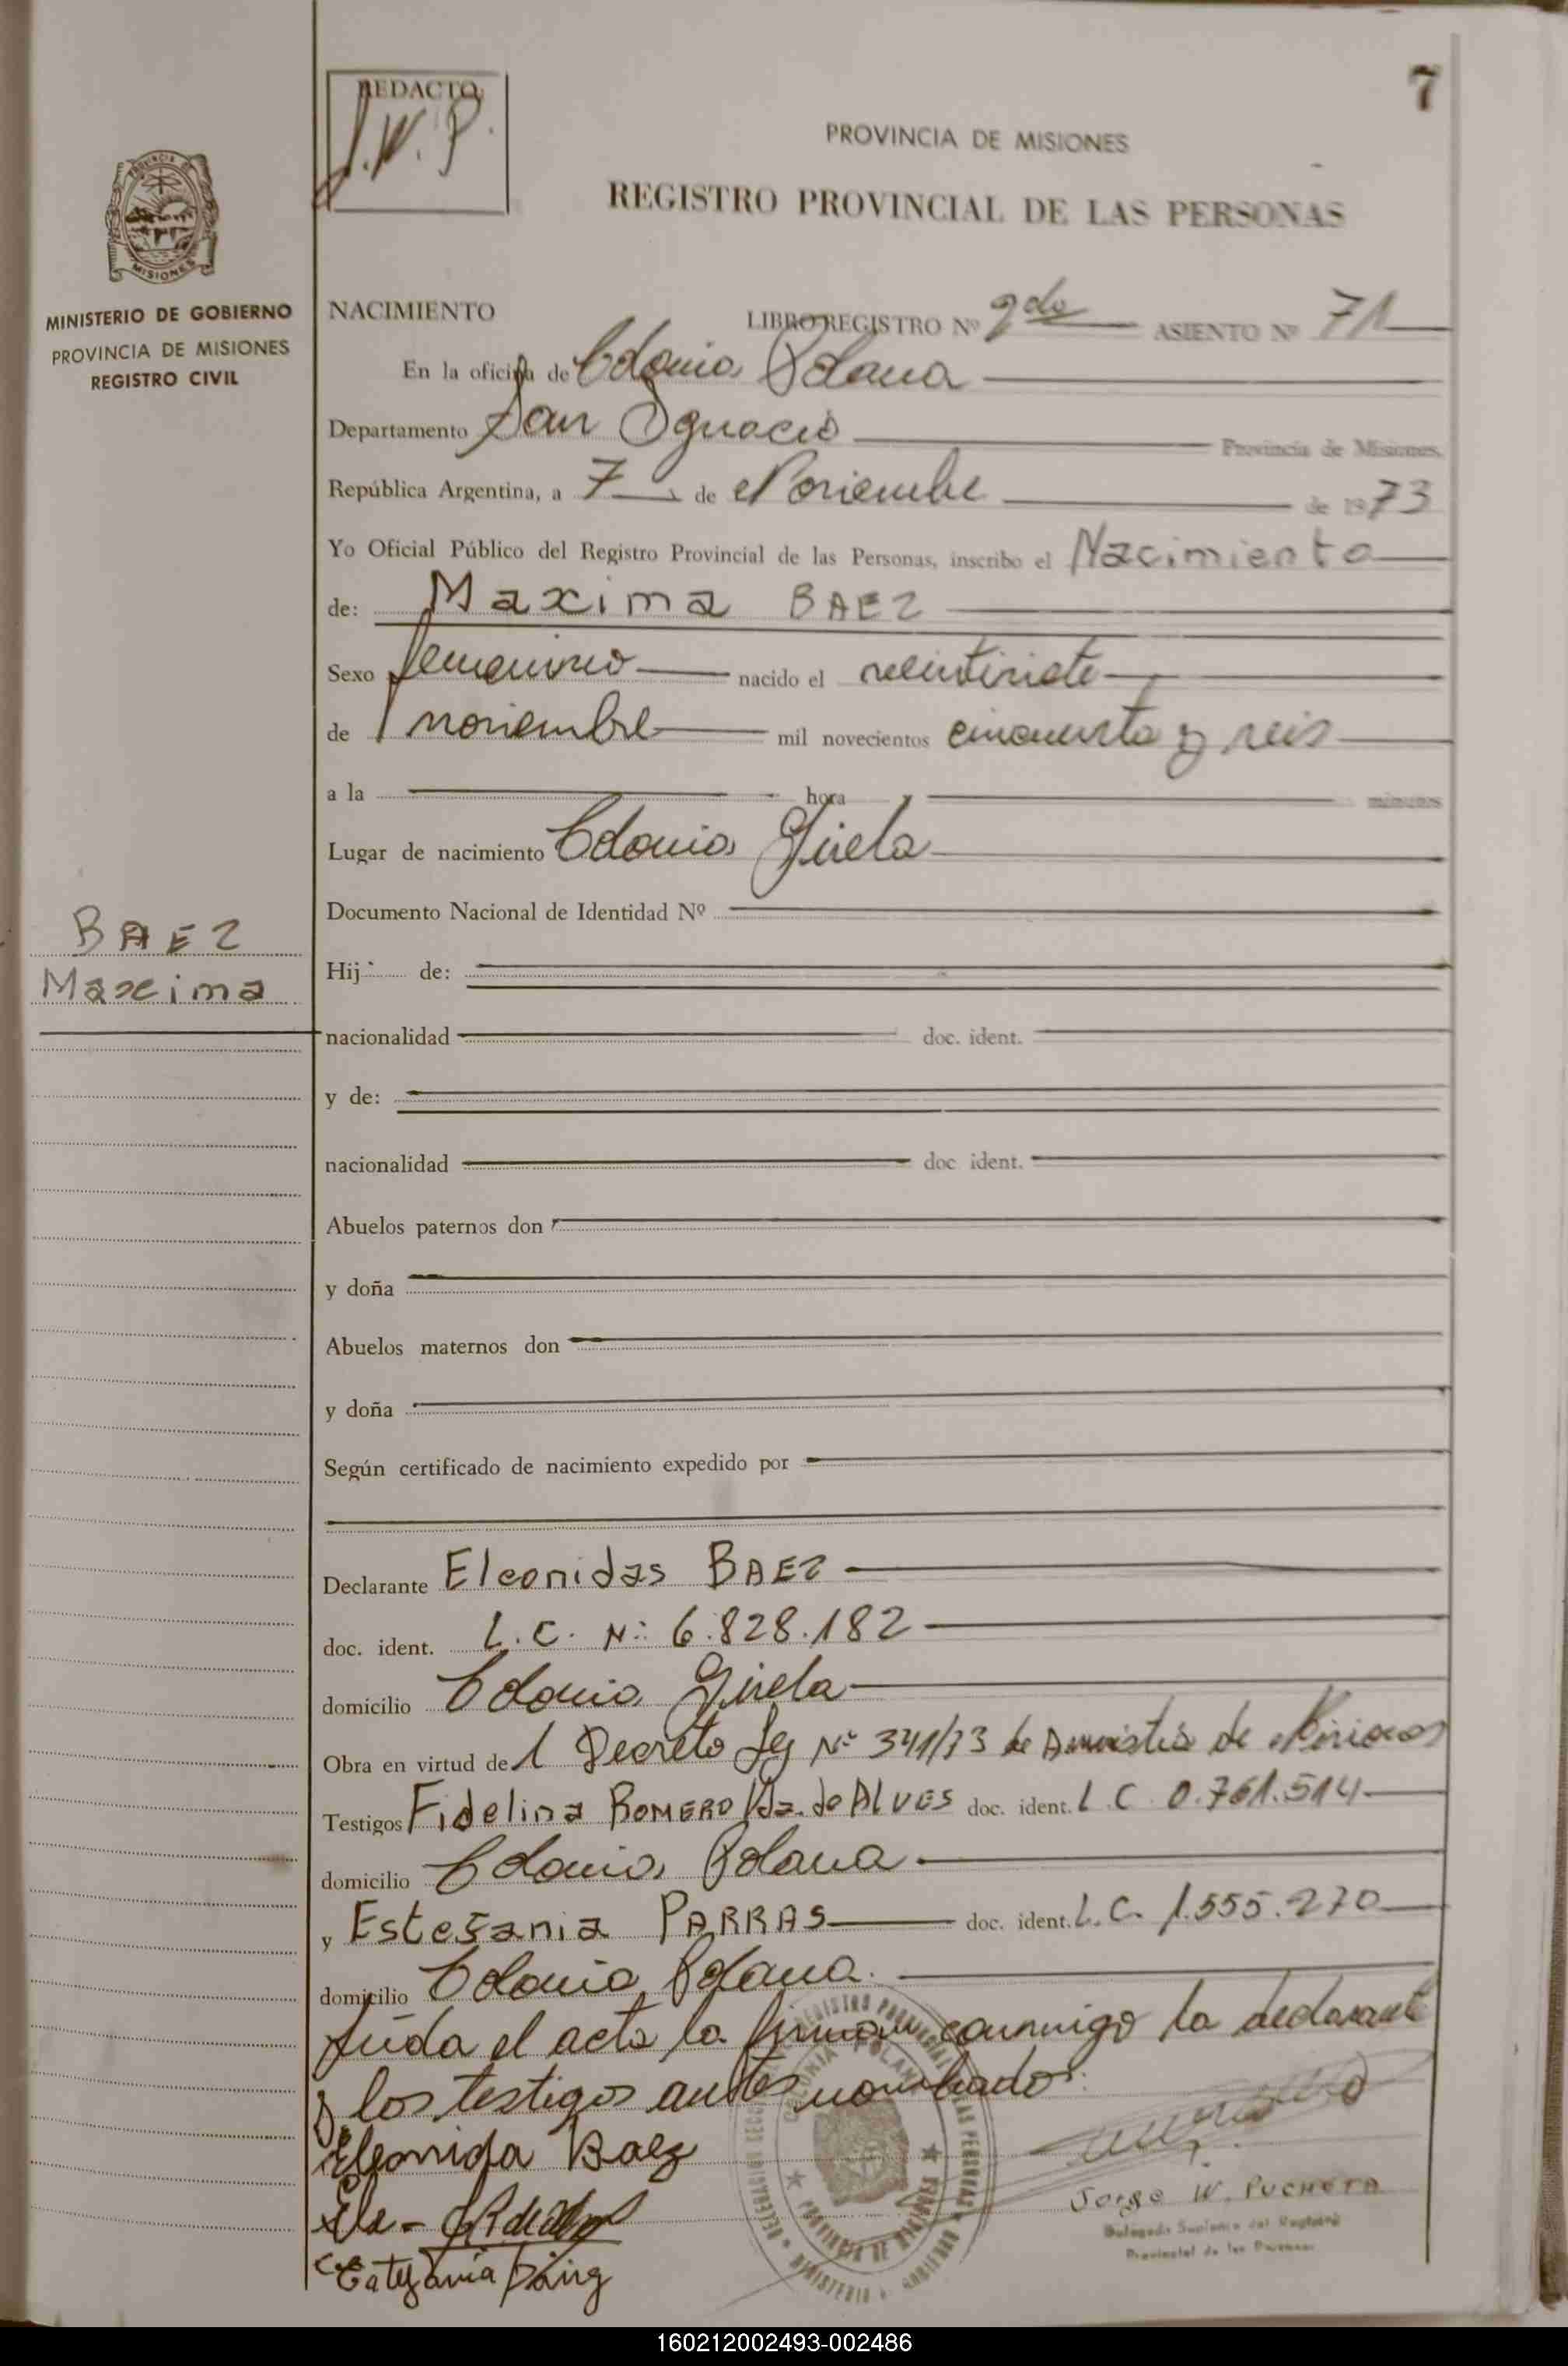 7
REDACTO
J.W.P.
PROVINCIA DE MISIONES
REGISTRO PROVINCIAL DE LAS PERSONAS
MISIONES
MINISTERIO DE GOBIERNO
PROVINCIA DE MISIONES
REGISTRO CIVIL
NACIMIENTO LIBRO REGISTRO Nº 2do ASIENTO Nº 71
En la oficina de Colonia Polana
Departamento San Ignacio Provincia de Misiones.
República Argentina, a 7 de Noviembre de 1973
Yo Oficial Público del Registro Provincial de las Personas, inscribo el Nacimiento
de: Maxima BAEZ
Sexo femenino nacido el veintisiete
de noviembre mil novecientos cincuenta y seis
a la hora y minutos
Lugar de nacimiento Colonia Gisela
Documento Nacional de Identidad Nº
BAEZ
Maxima
Hij de:
nacionalidad doc. ident.
y de:
nacionalidad doc ident.
Abuelos paternos don
y doña
Abuelos maternos don
y doña
Según certificado de nacimiento expedido por
Declarante Eleonidas BAEZ
doc. ident. L.C. Nº 6.828.182
domicilio Colonia Gisela
Obra en virtud del Decreto Ley Nº 341/73 de Amnistía de Misiones
Testigos Fidelina ROMERO Vda. de ALVES doc. ident. L.C 0.761.514
domicilio Colonia Polana
y Estefania PARRAS doc. ident. L.C. 1.555.270
domicilio Colonia Polana.
Leída el acta la firman conmigo la declarante
y los testigos antes nombrados.
Eleonida Baez
Jorge W. PUCHETA
Delegado Suplente del Registro
Provincial de las Personas
160212002493-002486